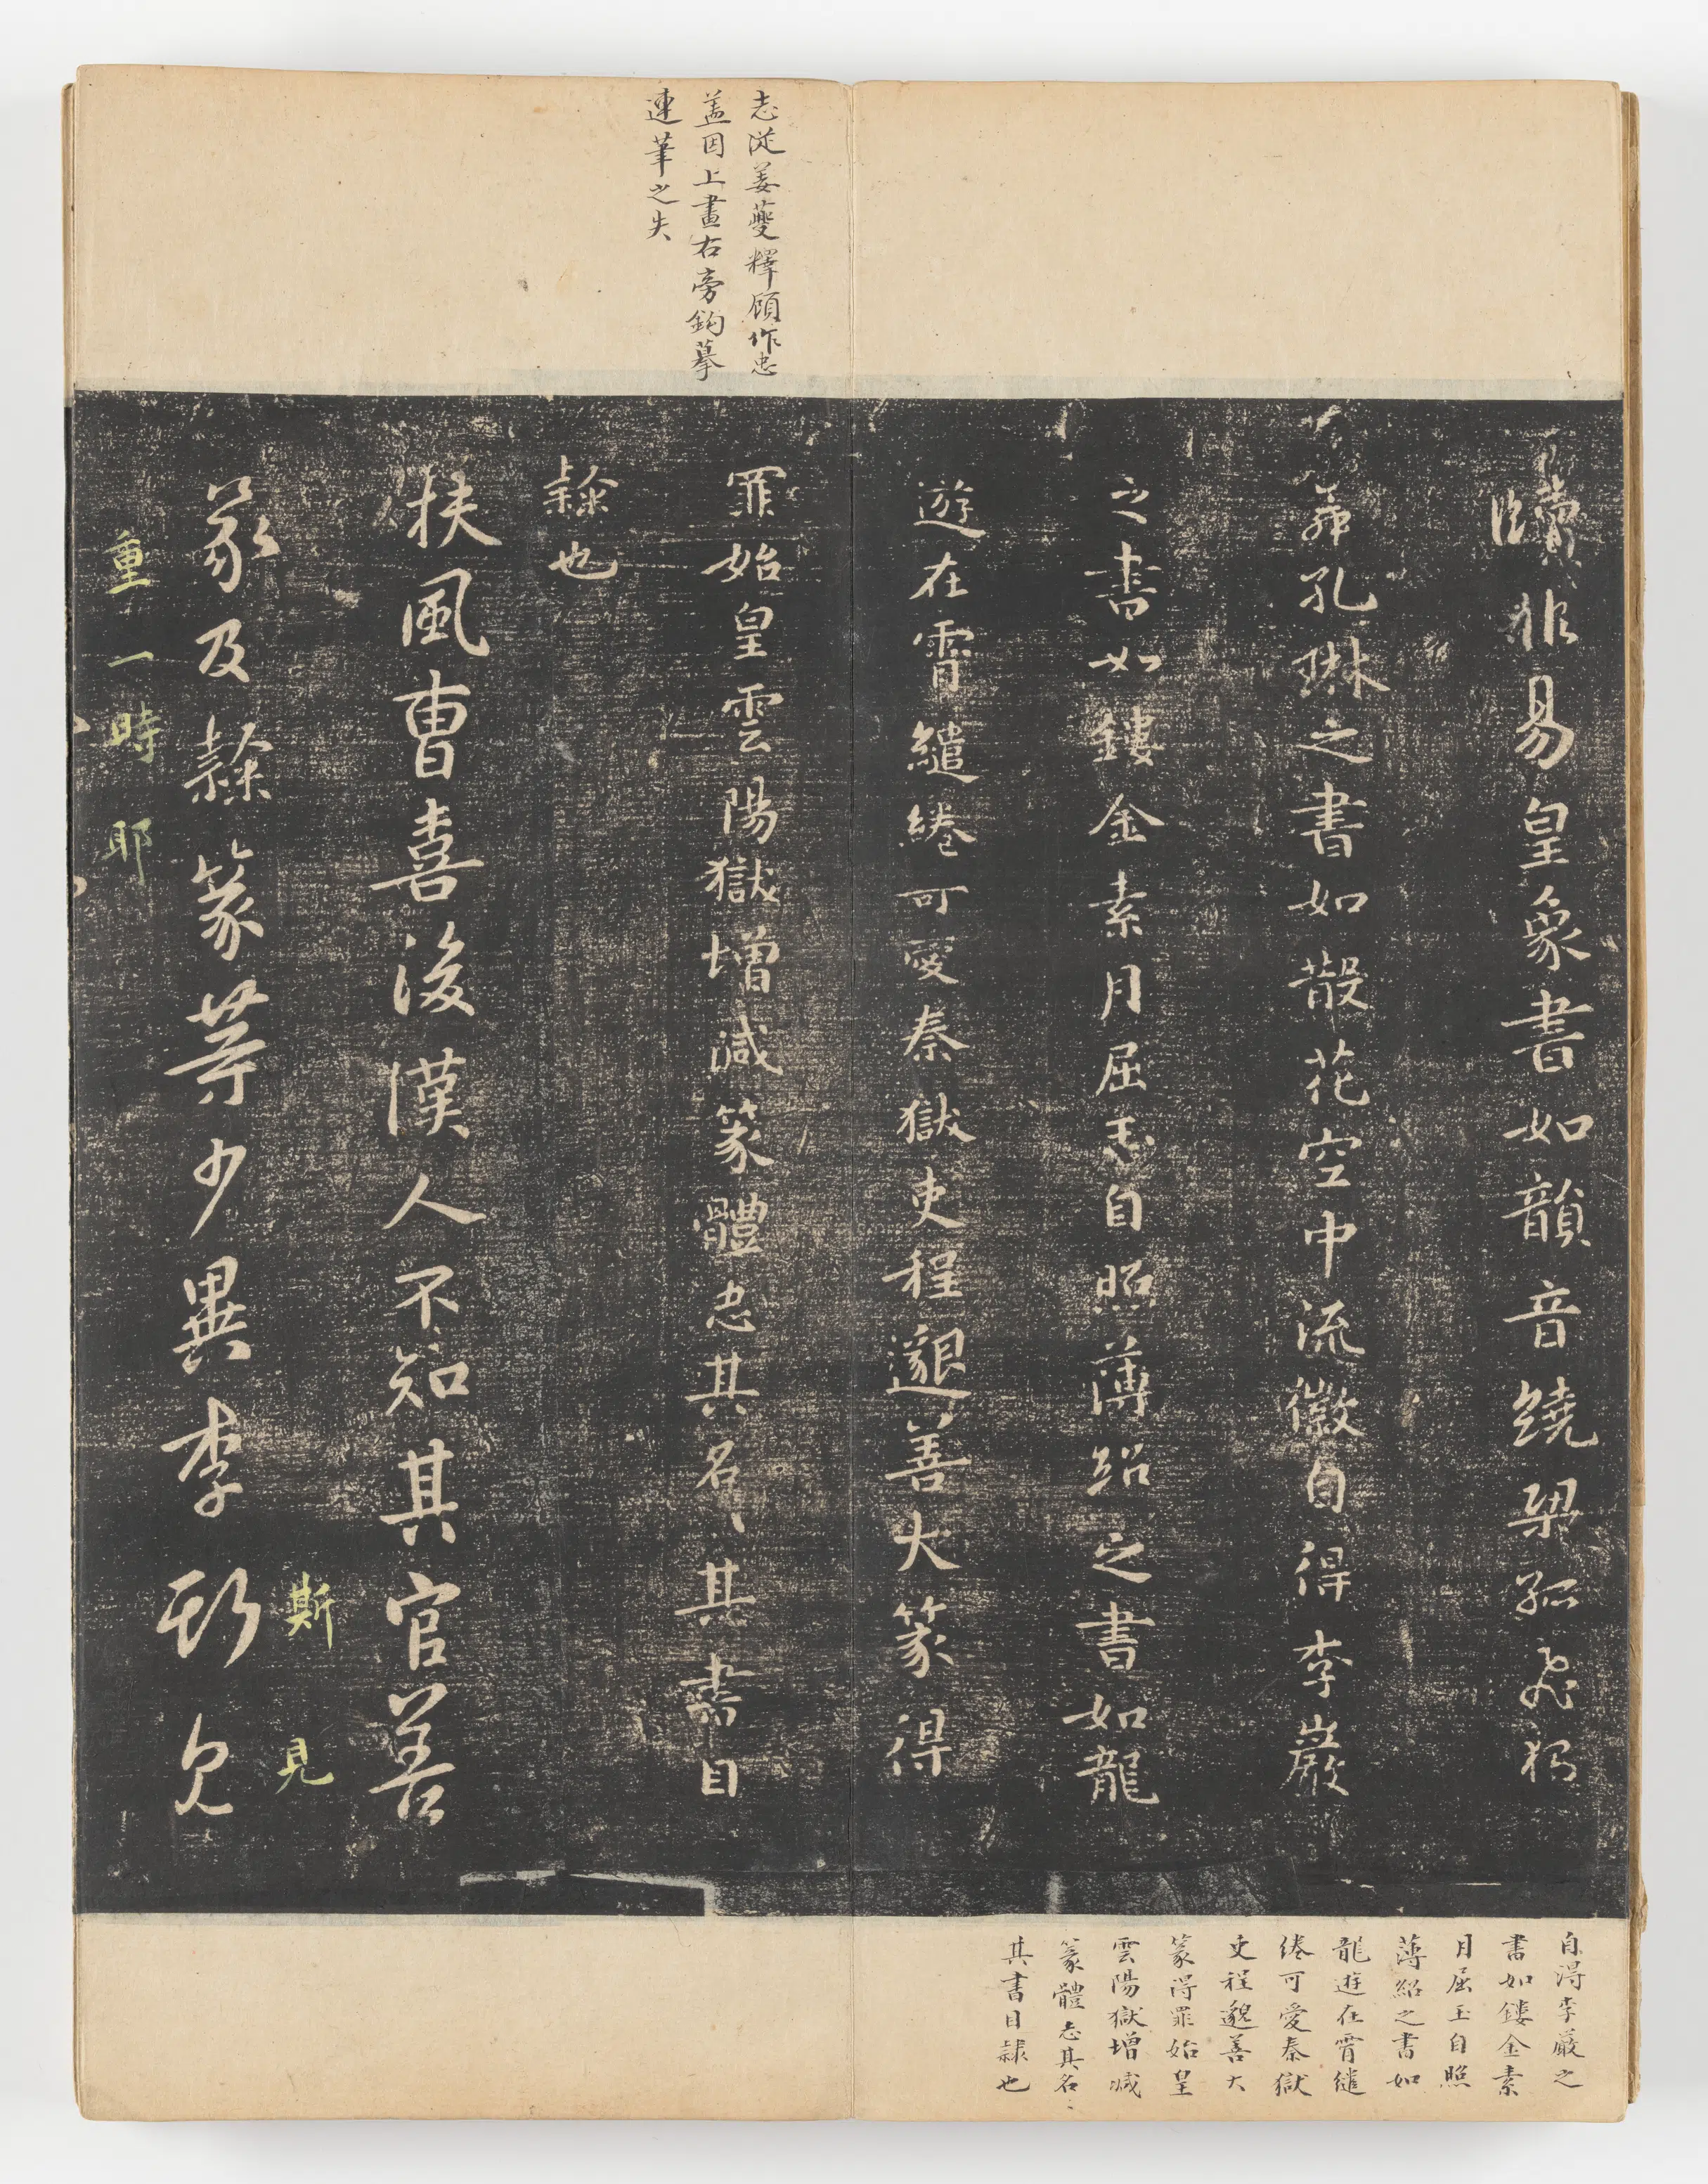 志從姜夔釋顧作忠
蓋因上畫右旁鈎摹
連筆之失
牘非易皇象書如韻音繞梁孤飛獨
舞孔琳之書如散花空中流徽自得李巖
之書如鏤金素月屈玉自照薄紹之書如龍
遊在霄繾綣可愛秦獄吏程邈善大篆得
罪始皇雲陽獄增減篆體忠其名〻其書目
隸也
扶風曹喜後漢人不知其官善
篆及隸篆等少異李斯
斯
見
重一時耶
自得李巖之
書如鏤金素
月屈玉自照
薄紹之書如
龍遊在霄繾
綣可愛秦獄
吏程邈善大
篆得罪始皇
雲陽獄增減
篆體志其名〻
其書目隸也